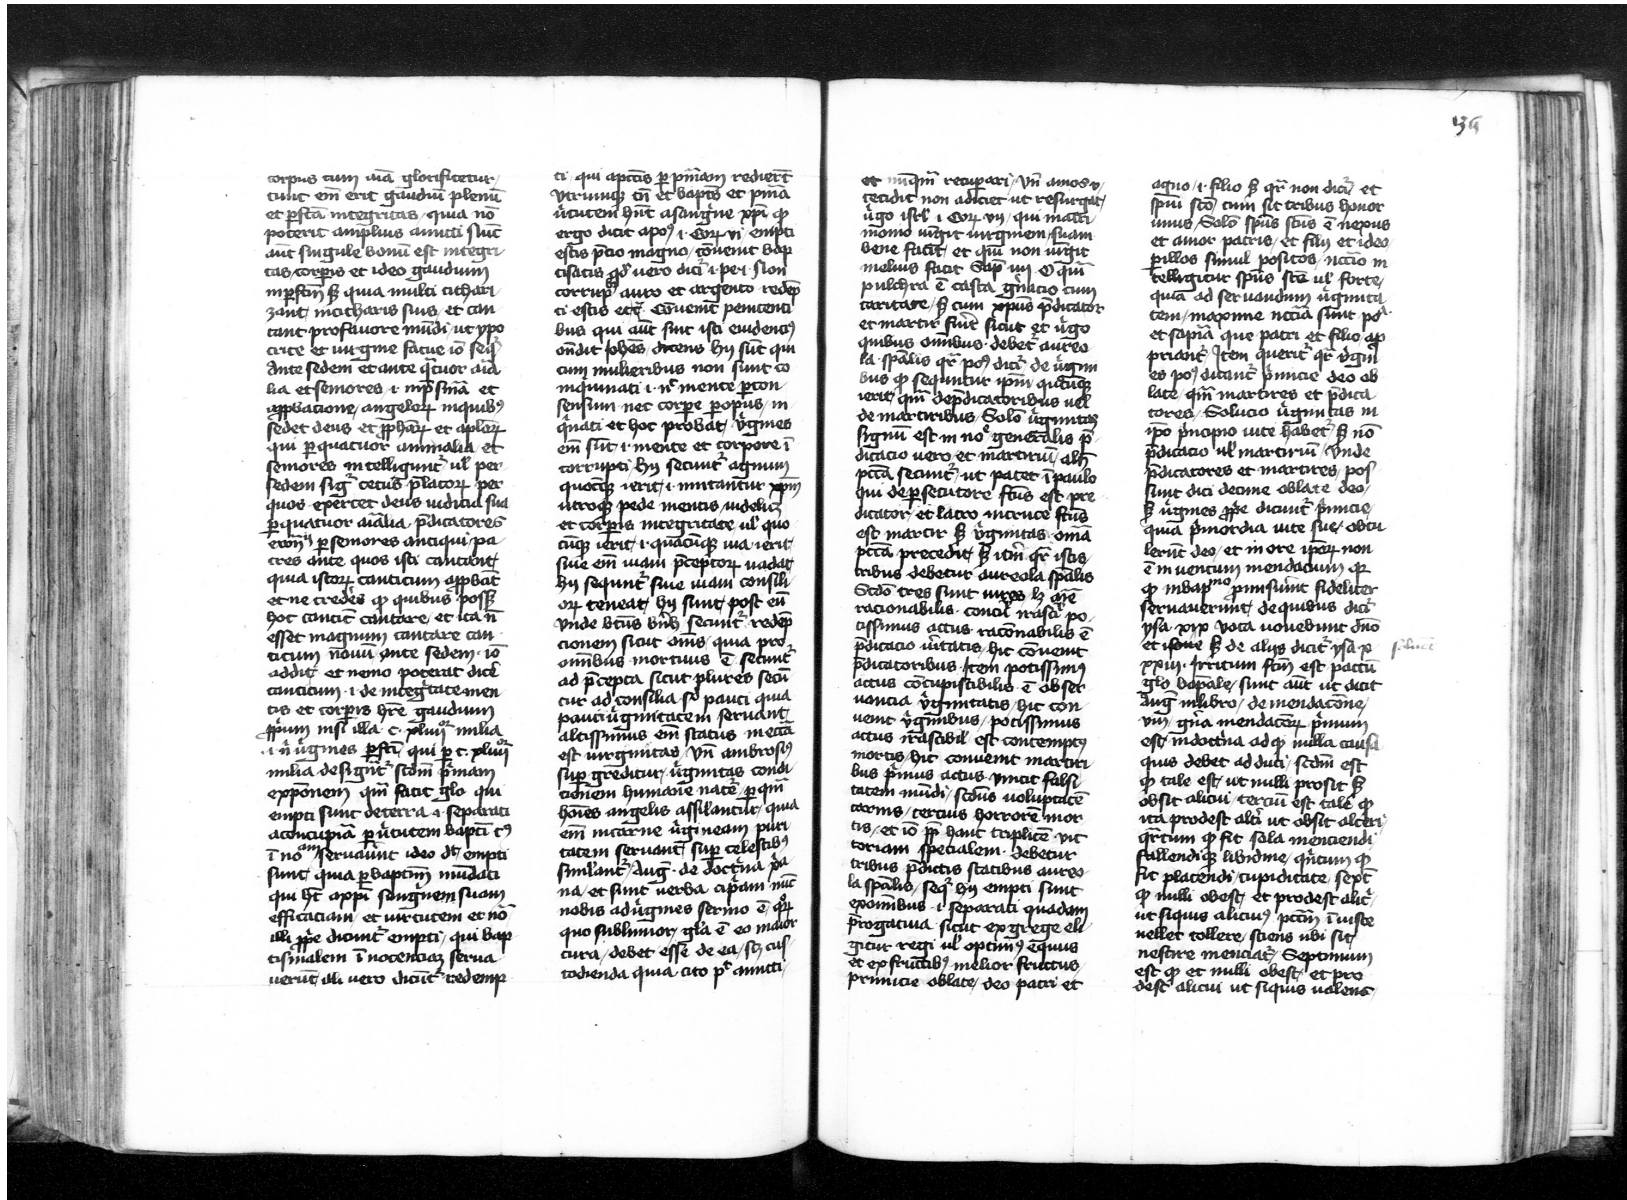 corpus cum aīa glorificetur,
tunc em̄ erit gaudiū plenū
et ꝑfcā integritas, quia nō
poterit amplius amitti sicut̄
aūt singule bonū est integri
tas corꝑis et ideo gaudium
inꝑfctm̄ sꝫ quia multi cithari
zant, in citharis suis, et can
tant pro fauore mūdi, ut ypo
crite et virgine fatue iō seqr̄
Ante sedem et ante qͣtuor aīa
lia et seniores .i. in p̄sencia et
approbacione, angelorꝝ in quibꝰ
sedet deus et ꝓphetarꝝ et aplorꝝ
qui ꝑ quatuor animalia, et
seniores intelligunt᷑ ul̄ per
sedem sigᷓ cetus p̄latorꝝ per
quos exercet deus iudicia sua
ꝑ quatuor aīalia p̄dicatores
ecōiꝰ ꝑ seniores antiqui pa
tres ante quos isti cantant,
quia istorꝝ canticum apꝓbāt
et ne credēs ꝙ quibus posset
hoc cantic̄ cantare, et ita n̄
esset magnum cantare can
ticum nouū ante sedem .iō
addit et nemo poterat dicē
canticum .i. de integᷓtate men
tis et corꝑis hr̄e gaudium
ꝓpūm nisi illa .c. xliiiior milia
.i. n̄ uͥgines ꝑfcī, qui ꝑ .c. xliiiior
milia designt᷑ scdm̄ pͥmam
exposcōnem qm̄ facit glo qui
empti sunt de terra .i. separati
a concupiā ꝑ uͥtutem bapti cꝰ
ī nō am seruauūt ideo dt̄ empti
sunt, quia ꝑ baptim̄ mūdati
qui ht̄ a xpī sangͥnem suam
efficaciam, et virtutem et nō
illi ꝓpͥe dicunt᷑ empti, qui bap
tismalem ī nocenciaꝫ serua
uerūt, ali vero dicūt᷑ redemp
ti, qui a pctīs ꝑ pn̄iam redierūt
Vtriusqꝫ tn̄ et baptꝫ et pn̄ia
uͥtutem hn̄t a sangͥne xpī ꝙ
ergo dicit apoꝰ .i. Corꝝ vi empti
estis p̄cio magno, cōuenit bap
tisatis qd̄ vero dicit᷑ .i. peti. Non
corrupͭ auro et argento redēp
ti estis etc̄. Cōuenit penitenti
bus qui aūt sint isti euidenciꝰ
ōndit Johēs, dicens hij sūt qui
cum mulieribus non sunt co
inqͥnati .i. n̄ mente ꝑ con
sensum nec corꝑe ꝑ opus, in
qͥnati et hoc probat, uͥgines
em̄ sūt .i. mente et corpore ī
corrupti hij secunt᷑ agnum
quocūqꝫ ierit, .i. imitantur xpm̄
utroqꝫ pede mentis, videlicꝫ
et corꝑis integritate ul̄ quo
cūqꝫ ierit, .i. quacūqꝫ via ierit,
siue em̄ viam p̄ceptorꝝ vadat,
hij sequnt᷑ siue viam consili
orꝝ teneat, hij sunt, post eū
Vnde btūs bn̄h secunt᷑ redēp
cionem sicut om̄s, quia pro
omībus mortuus ē secunt᷑
ad p̄cepta sicut plures secū
tur ad consilia sꝫ pauci quia
pauci uͥginitatem seruant,
altissimus em̄ status in ecc̄a
est virginitas, Vn̄ ambrosiꝰ
suꝑ gᷓreditur, uͥginitas condi
cionem humane natēͤ ꝑ qm̄
hoīes angelis assilantur, quia
em̄ in carne uͥgineam puri
tatem seruant suꝑ celestibꝰ
similant᷑, Aug̓. de doctͥna xͥa
na, et sunt verba cipͥani nūc
nobis ad uͥgines sermo ē, qrꝝ
quo sublimior, gla ē eo maior
cura, debet esse de ea, scꝫ cus
todienda quia cito pt̄ amitti,
et nūqm̄ recuperari, Vn̄ amos .v.
cecidit non adiciet ut resurgat,
uͥgo isrl̄ .i. Corꝝ vij, qui matri
monio iungit virginem, suam
bene facit, et qui non iungit
melius facit Sap̄ iiij O qm̄
pulchra ē casta gn̄acio cum
caritate, sꝫ cum xpūs p̄dicator
et martir fuit᷑ sicut et uͥgo
quibus omībus debet᷑ aureo
la spālis qr̄ poꝰ dicit᷑ de uͥgini
bus ꝙ sequntur ipm̄ quocūqꝫ
ierit, qm̄ de p̄dicatoribus uel
de martiribus, Solō uͥginitatis
signū est in nob̓ generalis p̄
dicacio vero, et martiriū, alīs
pctā secunt᷑, ut patet ī paulo
qui de ꝑsecutore fctūs est pre
dicator, et latro in cruce fctūs
est martir sꝫ uͥginitas omīa
pctā precedit, sꝫ itm̄ qr̄ istis
tribus debetur aureola spālis
Scdō tres sunt vires lꝫ aīe
racionabilis concil̓ irasci po
tissimus actus racōnabilis ē
p̄dicacio uͥitatis, hic cōuenit
p̄dicatoribus. Item potissimꝰ
actus concupiscibilis ē obser
uancia uͥginitatis, hic con
uenit uͥginibus, potissimus
actus irascibil̓ est contemptꝰ
mortis, hic conuenit martiri
bus pͥmus actus vincit falsi
tatem mūdi, scdūs voluptatē
carnis, tercius horrorē mor
tis, et iō ꝓpt̄ hanc triplicē vic
toriam specialem. debetur
tribus p̄dictis statibus aureo
la spālis, seqr̄ hij empti sunt
ex omībus .i. separati quadam
p̄rogatiua sicut ex grege eli
gitur regi ul̄ optimꝰ equus
et ex fructibꝰ melior fructus,
primicie oblate, deo patri et
agno, .i. filio sꝫ qr̄ non dicit᷑ et
spūi sctō cum sit tribus honor
unus, Solō spūs sctūs ē nexus
et amor patris, et filij et ideo
ꝑ illos simul positos, nccīo in
telligitur spūs sctūs ul̄ forte,
quia ad seruandum uͥginita
tem, maxime nccīa sunt poᷓ
et sapīa que patri et filio ap
priant᷑, Item querit᷑ qr̄ uͥgin
es poꝰ dicant᷑ pͥmicie deo ob
late, qm̄ martires et p̄dica
tores, Solucio uͥginitas in
ipō pͥncipio vite habet᷑ sꝫ nō
p̄dicacio ul̄ martiriū, Vnde
p̄dicatores et martires, pos
sunt dici decime oblate deo,
sꝫ uͥgines ꝓpͥe dicunt᷑ pͥmicie,
quia pͥmordia vite sue, obtu
lerūt deo, et in ore ipōrꝝ non
ē in uentum mendacium qꝛ
ꝙ in bapmo promiserūt fideliter
seruauerunt, de quibus dicit᷑
ysa xix vota vouebunt dn̄o
et soluent sꝫ de alijs dicit᷑ ysa x
xxiij. Irritum fctm̄ est pactū
glō bap̄ale, sunt aūt ut dicit
Aug̓ in libro, de mendacōne,
viij gn̄a mendacorꝝ pͥmum
est, in doctͥna ad ꝙ nulla causa
quis debet ad duci, scdm̄ est
ꝙ tale est, ut nulli prosit sꝫ
obsit alicui, terciū est tale ꝙ
ita prodest altͥi ut obsit alteri,
qrͣtum ꝙ fit sola menciendi
fallendiqꝫ libidine, qͥntum ꝙ
fit placendi, cupiditate, sext̄
ꝙ nulli obest, et prodest alic̓,
ut siquis alicuiꝰ pctm̄ ī iuste
uellet tollere, sciens ubi sit,
nescire menciat᷑, Septimum
est ꝙ et nulli obest, et pro
dest alicui ut siquis ualens,